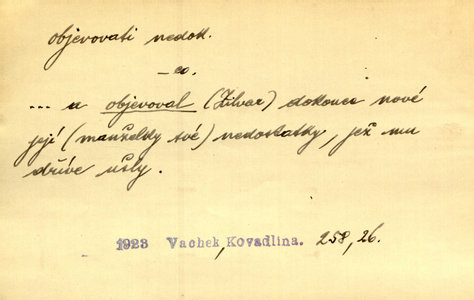 objevovati nedok.
— co.
... a objevoval (Žilvar) dokonce nové
její (manželky své) nedostatky, jež mu
dříve ušly.
1923 Vachek, Kovadlina. 258, 26.